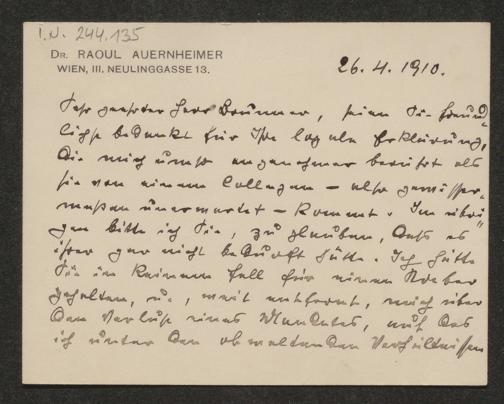 I.N. 244.135
DR. RAOUL AUERNHEIMER
WIEN, III. NEULINGGASSE 13.
26. 4. 1910.
Sehr geehrter Herr Brunner, seien Sie freund-
lichst bedankt für Ihre loyale Erklärung,
die mich umso angenehmer berührt als
sie von einem Collegen – also gewisser-
maßen unerwartet – kommt. Im übri-
gen bitte ich Sie, zu glauben, daß es
ihrer gar nicht bedurft hätte. Ich hätte
Sie in keinem Fall für einen Streber
gehalten, u., weit entfernt, mich über
den Verlust eines Mandates, auf das
ich unter den obwaltenden Verhältnissen